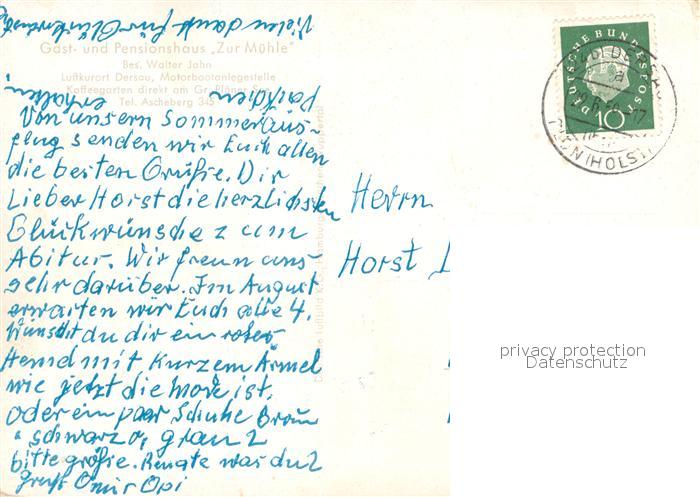 Vielen Dank für Glückwunsch
Gast- und Pensionshaus „Zur Mühle"
Bes. Walter Jahn
Luftkurort Dersau, Motorbootanlegestelle
Kaffeegarten direkt am Gr. Plöner See
Tel. Ascheberg 345
erhalten
Von unsern Sommeraus-
flug senden wir Euch allen
die besten Grüße. Dir
Lieber Horst die herzlichsten
Glückwünsche zum
Abitur. Wir freun uns
sehr darüber. Im August
erwarten wir Euch alle 4.
Wünscht du dir ein rotes
Hemd mit kurzem Ärmel
wie jetzt die Mode ist.
Oder ein paar Schuhe Braun
schwarz o, grau ?
bitte größe. Renate was du?
Gruß Omi u Opi
Herrn
Horst
DEUTSCHE BUNDESPOST
10
(HOLST)
privacy protection
Datenschutz